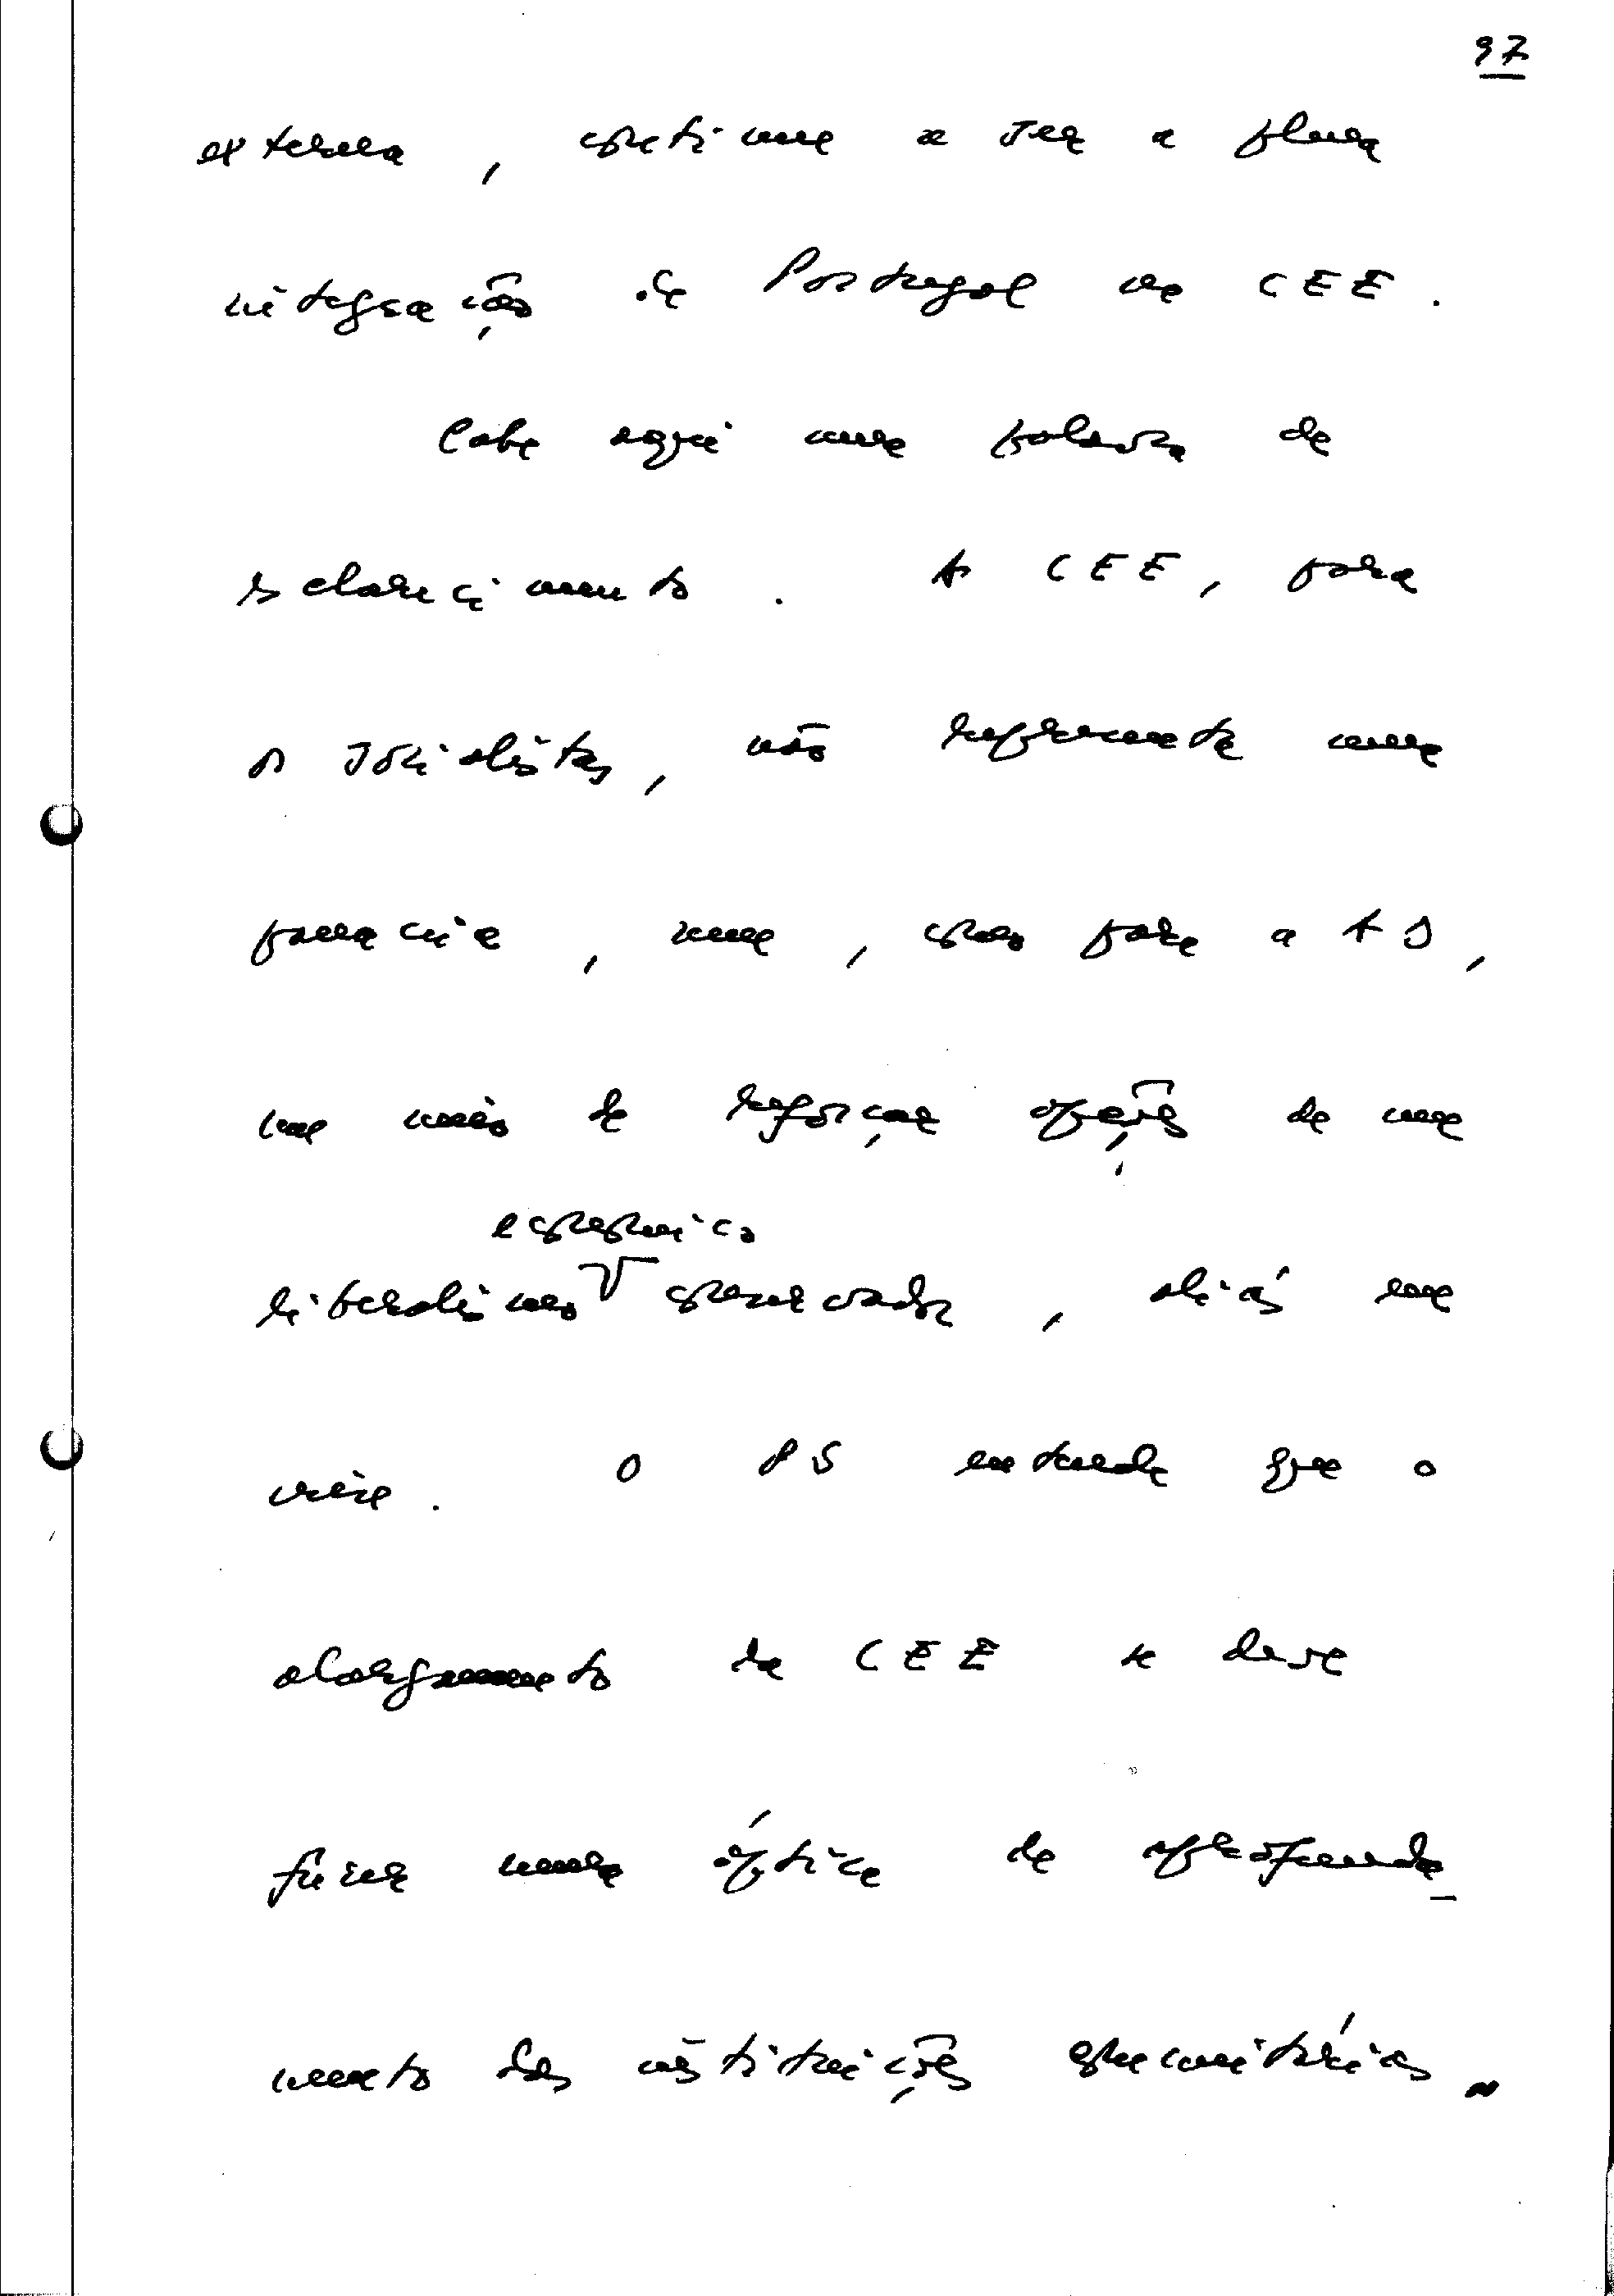 97
externa, continua a ser a plena
integração de Portugal na CEE.
Cabe aqui uma palavra de
esclarecimento. A CEE, para
os socialistas, não representa uma
panaceia, nem, como para a AD,
um meio de reforçar opções de um
económico
liberalismo conservador, aliás em
crise. O PS entende que o
alargamento da CEE se deve
fazer numa óptica de aprofunda-
mento das instituições comunitárias